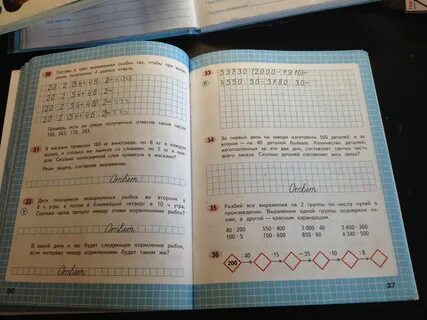 30 Поставь в трёх выражениях скобки так, чтобы при
получилось 4 разных ответа.
20·2·54+46:2=
20·2·54+46:2=
20·2·54+46:2=
20·2·54+46:2=
Проверь, есть ли среди полученных ответов такие числа:
31 В магазин привезли 160 кг винограда, по 8 кг в каждом
ящике, и столько же ящиков со сливами, по 5 кг в каждом.
Сколько килограммов слив привезли в магазин?
Реши задачу, составляя выражение.
Ответ
32 Дети покормили аквариумных рыбок во вторник в
утра, а потом в ближайший четверг в 10 ч утра.
Сколько часов прошло между этими кормлениями рыбок?
Ответ
В какой день и час будет следующее кормление рыбок,
если интервал между кормлениями будет таким же?
Ответ
36
33 53730:(2000-1910)=
4550:50-3180:30=
34 За первый день на заводе изготовили 560 деталей, а за
второй — на 40 деталей больше. Количество деталей,
изготовленных за эти два дня, составляет третью часть
всего заказа. Сколько деталей составляет весь заказ?
Ответ
35 Разбей все выражения на 2 группы по числу нулей в
произведении. Выражения одной группы подчеркни си-
ним, а другой — красным карандашом.
40·200 550·400 3 000·40 3 450·300
100·5 700·600 850·60 4 340·500
36 200 :40 ·15 −35 ·10 ·8
37